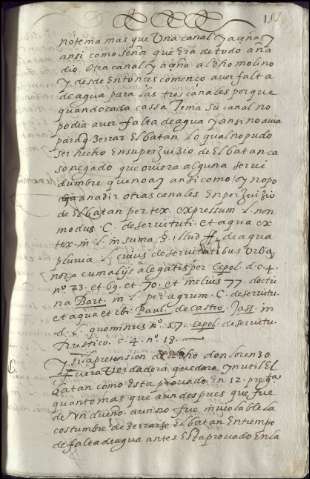 no tenia mas que Una canal y aguay
ansi como señor que era de todo aña
dio otra canal y agua al dho molino
y desde entonces començo aver falta
de agua para las tres canales porque
quando cada cossa tenia su canal no
podia aver falta de agua y ansi no avia
para q̃ serrar El batan lo qual no pudo
ser hecho En su perjuizio de El batan ca
so negado que oviera alguna servi
dumbre que no ay ansi como no po
dia añadir otras canales En perjuizio
de El batan per tex. expressum l. non
modus. C. de servitut. et aqua ex
tex. in l. in summa. §. illud ff. de aqua
pluvia l. cuius de servitutibus Urba
nor. cum alijs alegatis per Cepol. d. c. 4.
nº 73. et 69. et 70. et melius 77. doctri
na Bart. in l. per agrum. C. de servitut.
et aqua et ibi Paul. de Castro, Jass. in
d. l. quominus nº. 57. Cepol. de servitut.
Rustico. c. 4. nº 18.
Si la pretension de dho don lorenzo
fuera Verdadera quedara ynutil El
batan como esta provado En 12. preg.
quanto mas que aun despues que fue
de Un dueño avnsso fue inviolable la
costumbre de serrarse El batan En tiempo
de falta de agua antes Esta provado En la